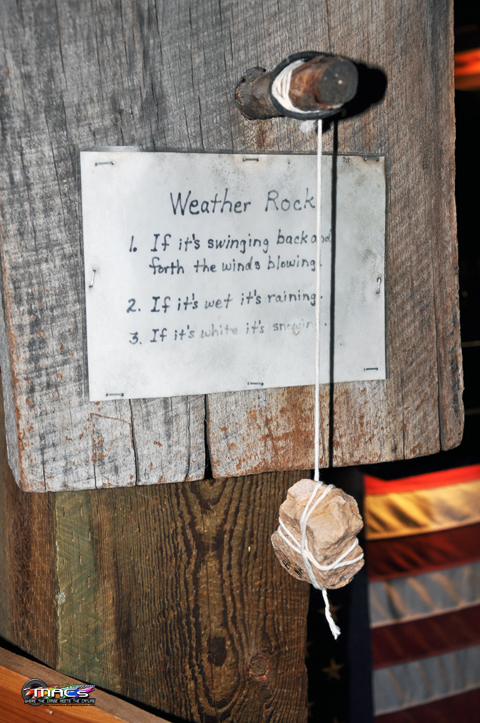 Weather Rock
1. If it's swinging back and
forth the winds blowing.
2. If it's wet it's raining.
3. If it's white it's snowing.
MACS